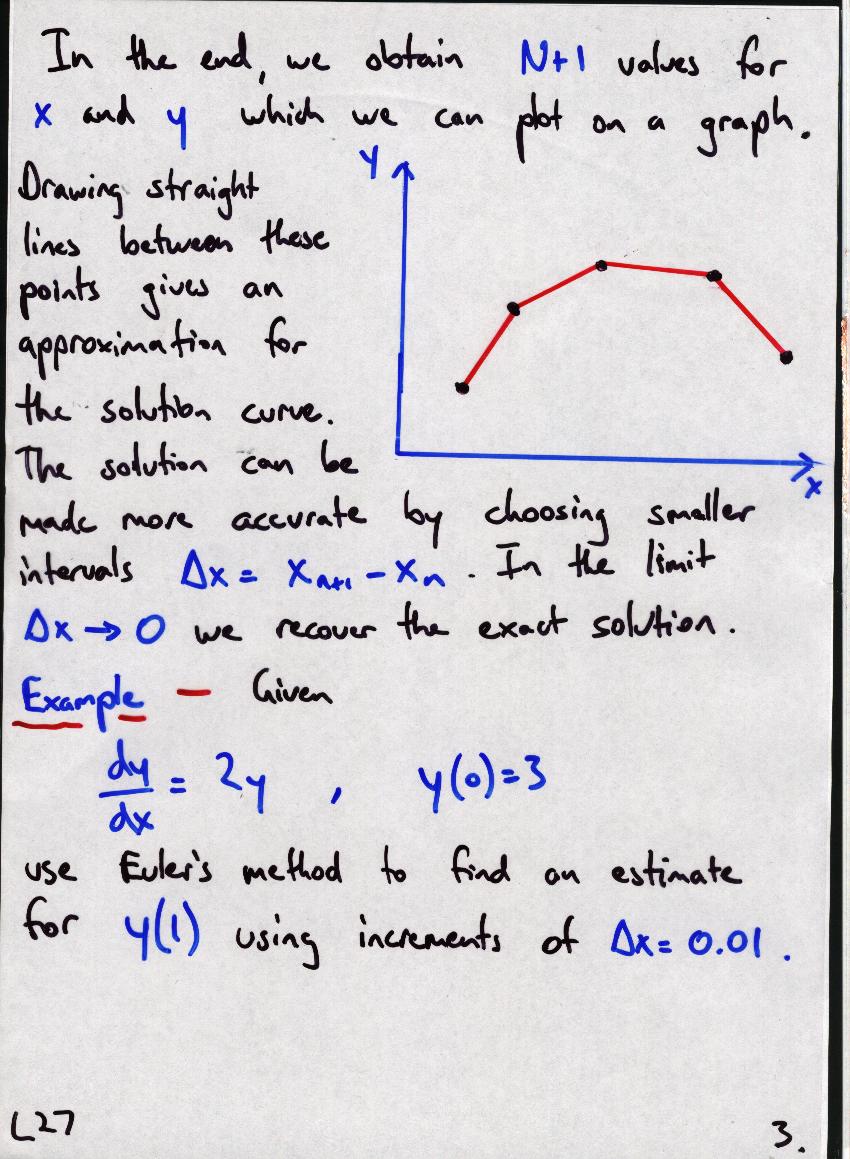 In the end, we obtain N+1 values for
x and y which we can plot on a graph.
y
Drawing straight
lines between these
points gives an
approximation for
the solution curve.
The solution can be
x
made more accurate by choosing smaller
intervals Δx = xₙ₊₁ − xₙ. In the limit
Δx → 0 we recover the exact solution.
Example — Given
dy/dx = 2y , y(0)=3
use Euler's method to find an estimate
for y(1) using increments of Δx = 0.01.
L27
3.